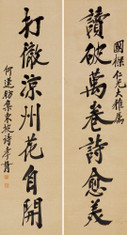 國樑仁兄大雅屬
讀破萬卷詩愈美
打徹涼州花自開
何蓮舫集東坡詩孝胥